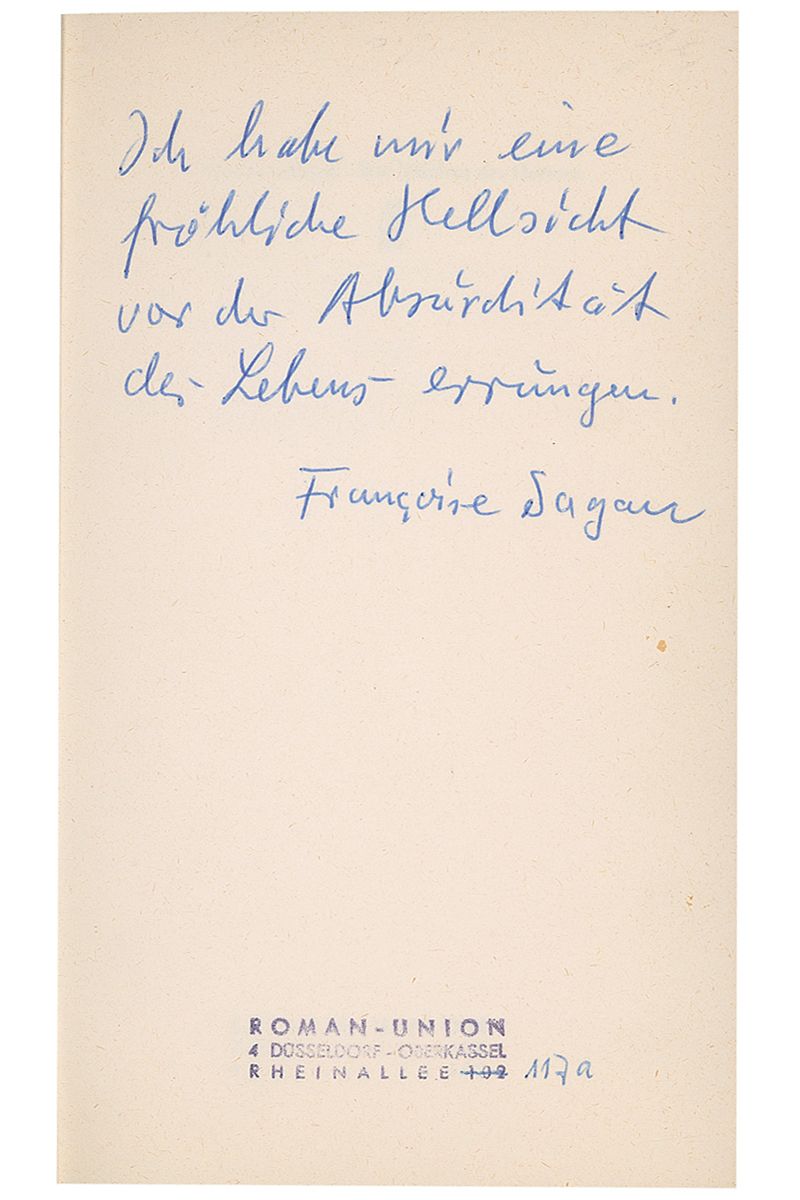 Ich habe mir eine
fröhliche Hellsicht
vor der Absurdität
des Lebens errungen.
Françoise Sagan
ROMAN-UNION
4 DÜSSELDORF-OBERKASSEL
RHEINALLEE 102 117a